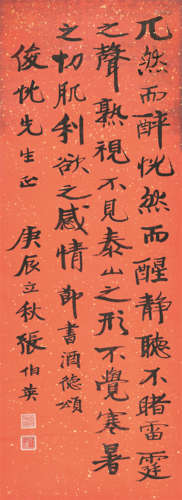 兀然而醉恍然而醒静聽不睹雷霆
之聲熟視不見泰山之形不覺寒暑
之切肌利欲之感情節書酒德頌
俊忱先生正
庚辰立秋張伯英